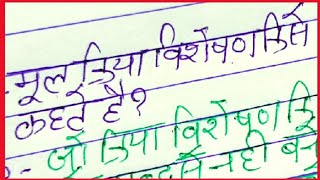 -मूल क्रिया विशेषण किसे
कहते है?
- जो क्रिया विशेषण कि
नही बने